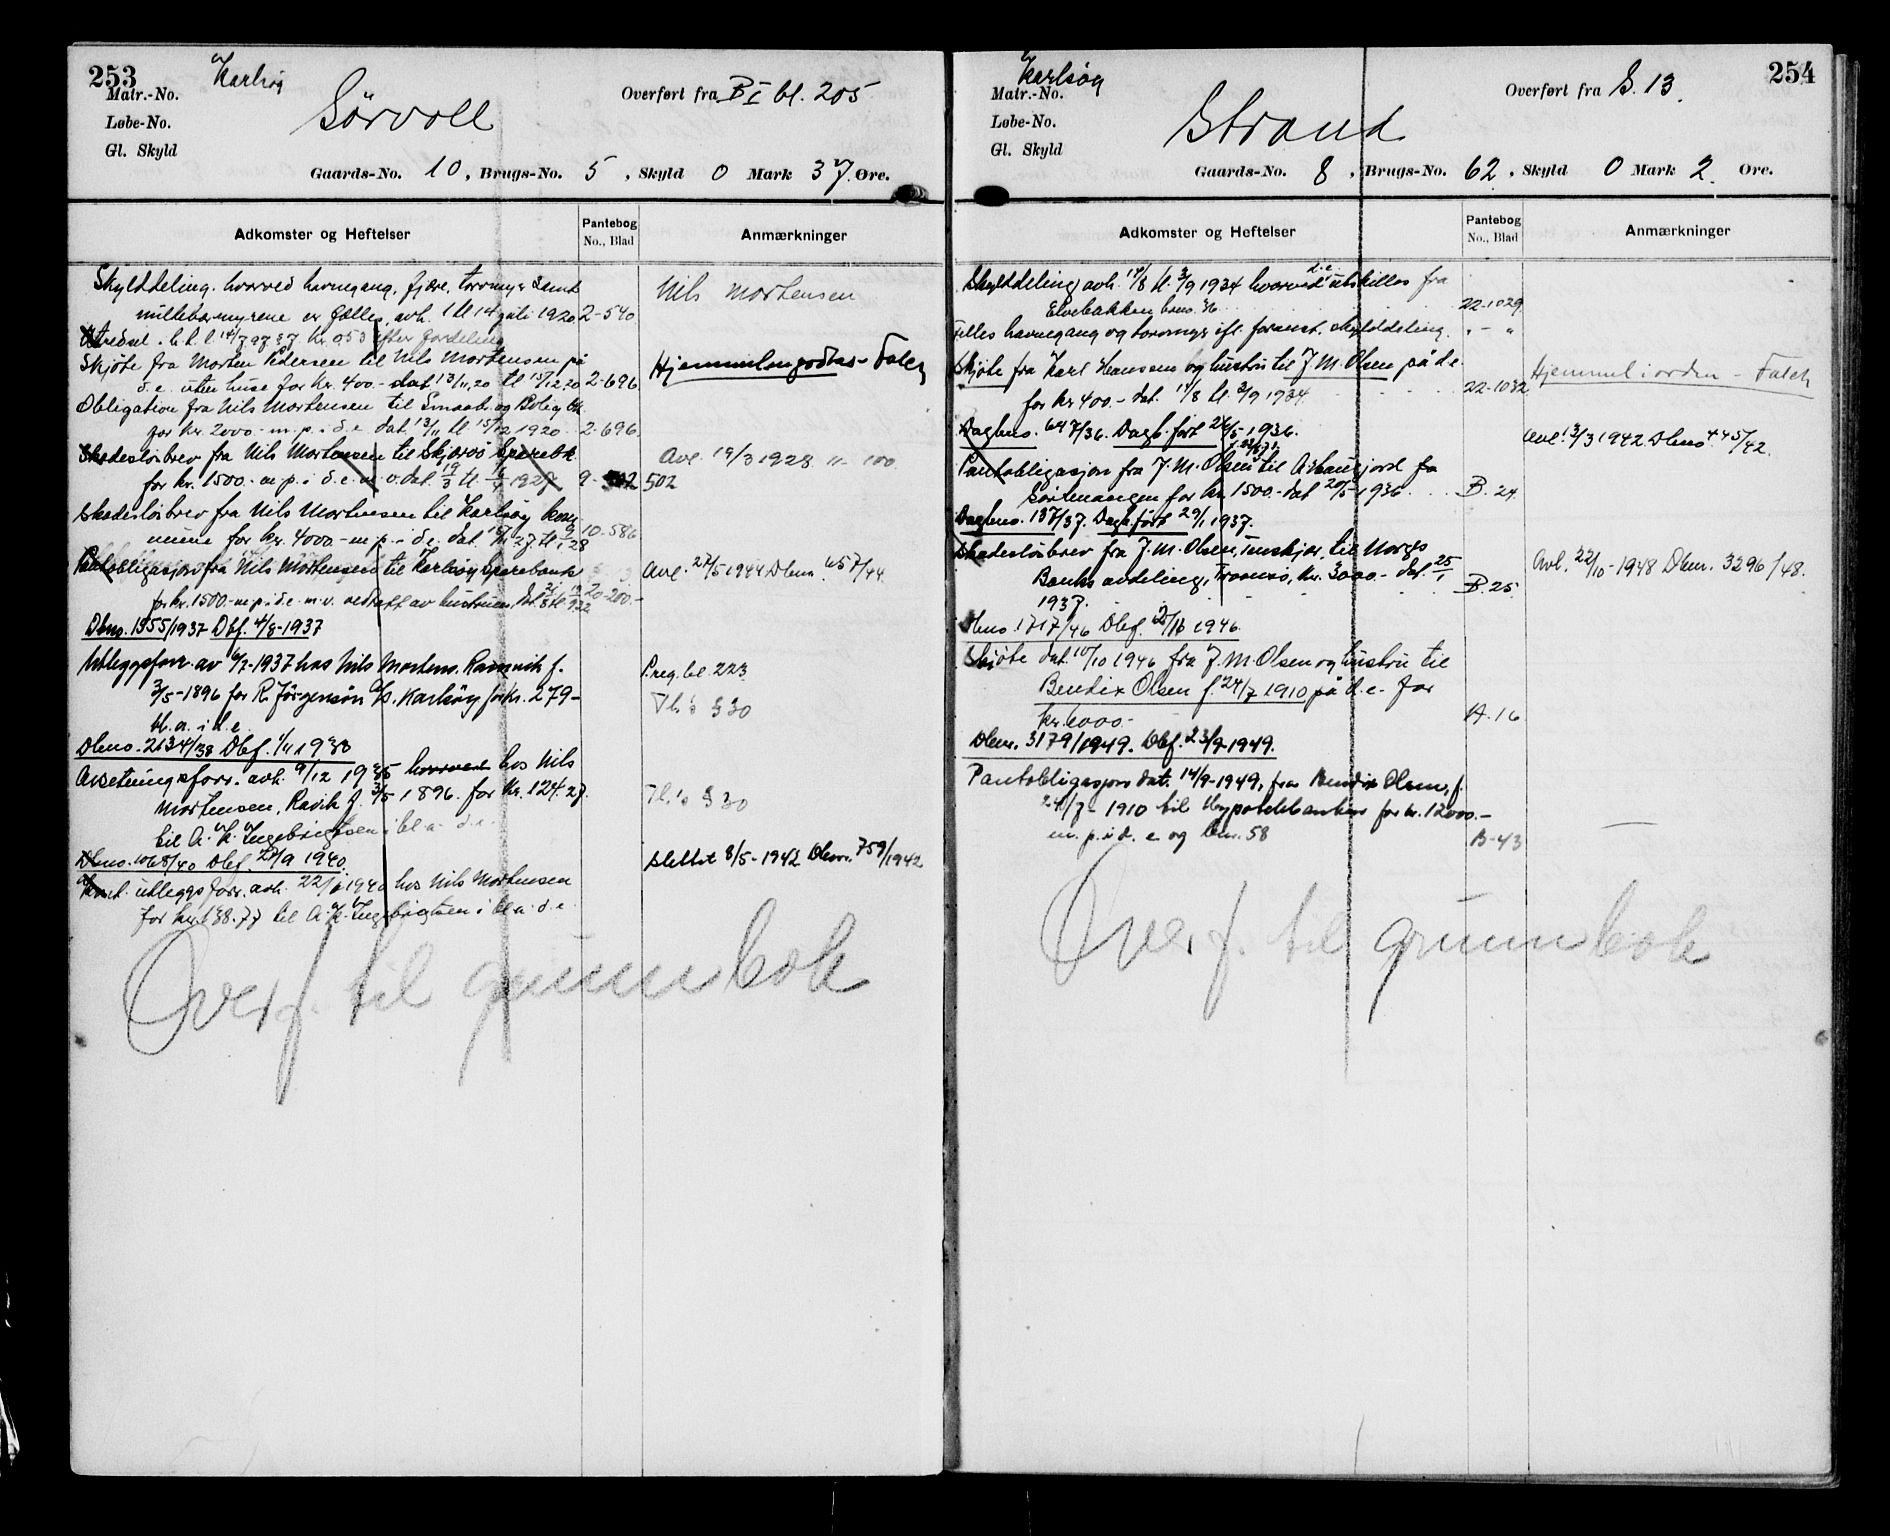 253
Karlsøy
Matr.-No.
Sörvoll
Overført fra B I bl. 205
Løbe-No.
Gl. Skyld
Gaards-No. 10, Brugs-No. 5, Skyld 0 Mark 37 Øre.
Adkomster og Heftelser
Pantebog
No., Blad
Anmærkninger
Skylddeling. hvorved havnegang, fjære, torvmyr samt
multebærmyrene er fælles, avh. 1 tl 14 juli 1920 2-540
Nils Mortensen
efter fordeling
Skjøte fra Morten Pedersen til Nils Mortensen på
d.e. uten huse for kr. 400.- dat 13/11 20 tl 15/12 20 2-696
Hjemmelen godtas - Falch
Obligation fra Nils Mortensen til Smaabr. og Bolig bk.
for kr. 2000.- m.p. i d.e. dat 13/11 tl 15/12 1920 2-696.
Skadesløsbrev fra Nils Mortensen til Skjærvö Sparebk.
for kr. 1500.- m.p. i d.e. m.v. dat. 19/3 tl. 1/4 1927 9- 502
Avl. 19/3 1928 11-100.
Skadesløsbrev fra Nils Mortensen til Karlsöy kom
mune for kr. 4000.- m.p. i d.e. dat. 15/11 27 tl 9/1 28 10-586
Pantobligasjon fra Nils Mortensen til Karlsöy Sparebank
for kr. 1500.- m.p. i d.e. m.v. vedtatt av hustruen, 20-200.-
Avl. 27/5 1944 Dbnr. 657/44
Dbno. 1355/1937 Dbf. 4/8-1937
Utleggsforr. av 6/7-1937 hos Nils Mortens. Ravnvik f.
3/5-1896 for R. Jörgensen A/S. Karlsöy for kr. 279.-
bl. a. i d.e.
P.reg. bl. 223
Tl.'s § 30
Dbno. 2134/38 Dbf. 1/11 1938
Avsetningsforr. avh. 9/12 1935 hvorved hos Nils
Mortensen, Ravik f. 3/5 1896. for kr. 124.27.
til A. K. Ingebrigtsen i bl a. d.e.
Tl.'s § 30
Dbno. 1068/40 Dbf. 27/9 1940.
utleggsforr. avh. 22/6 1940 hos Nils Mortensen
for kr. 138.77 til A. K. Ingebrigtsen i bl a. d.e.
Slettet 8/5-1942 Dbnr. 759/1942
Overf. til grunnbok
254
Karlsøy
Matr.-No.
Strand
Overført fra S. 13.
Løbe-No.
Gl. Skyld
Gaards-No. 8, Brugs-No. 62, Skyld 0 Mark 2 Øre.
Adkomster og Heftelser
Pantebog
No., Blad
Anmærkninger
Skylddeling avh. 14/8 tl. 3/9 1934 hvorved d.e. utskilles fra
Elvebakken bno. 22-1029
Felles havnegang og torvmyr ifl. foranst. skylddeling. " - "
Skjöte fra Karl Hansen og hustru til J. M. Olsen på d.e.
for kr 400.- dat. 14/8 tl. 3/9 1934 22-1032
Hjemmel i orden - Falch
Dagbno. 647/36. Dagb. fört 26/5-1936.
Pantobligasjon fra J. M. Olsen til A. Haugjord fa
for kr. 1500.- dat 20/5-1936. B. 24
Avl. 13/3 1942. Dbno. 445/42.
Dagbno. 137/37. Dagb. fört 29/1 1937.
Skadesløsbrev fra J. M. Olsen, til Norges
Banks avdeling, Tromsö, kr. 3000.- dat. 25/1
1937. B. 25
Avl. 22/10-1948 Dbnr. 3296/48.
Dbno. 1717/46 Dbf. 1946.
Skjöte dat. 10/10 1946 fra J. M. Olsen og hustru til
Bendix Olsen f. 24/7 1910 på d.e. for
kr. 1000.- A. 16
Dbnr. 3179/1949. Dbf. 23/9-1949.
Pantobligasjon dat. 14/9-1949, fra Bendix Olsen, f.
24/7-1910 til Hypotekbanken for kr. 12000.-
m.p. i d.e og bnr. 58 B-43
Overf. til grunnbok